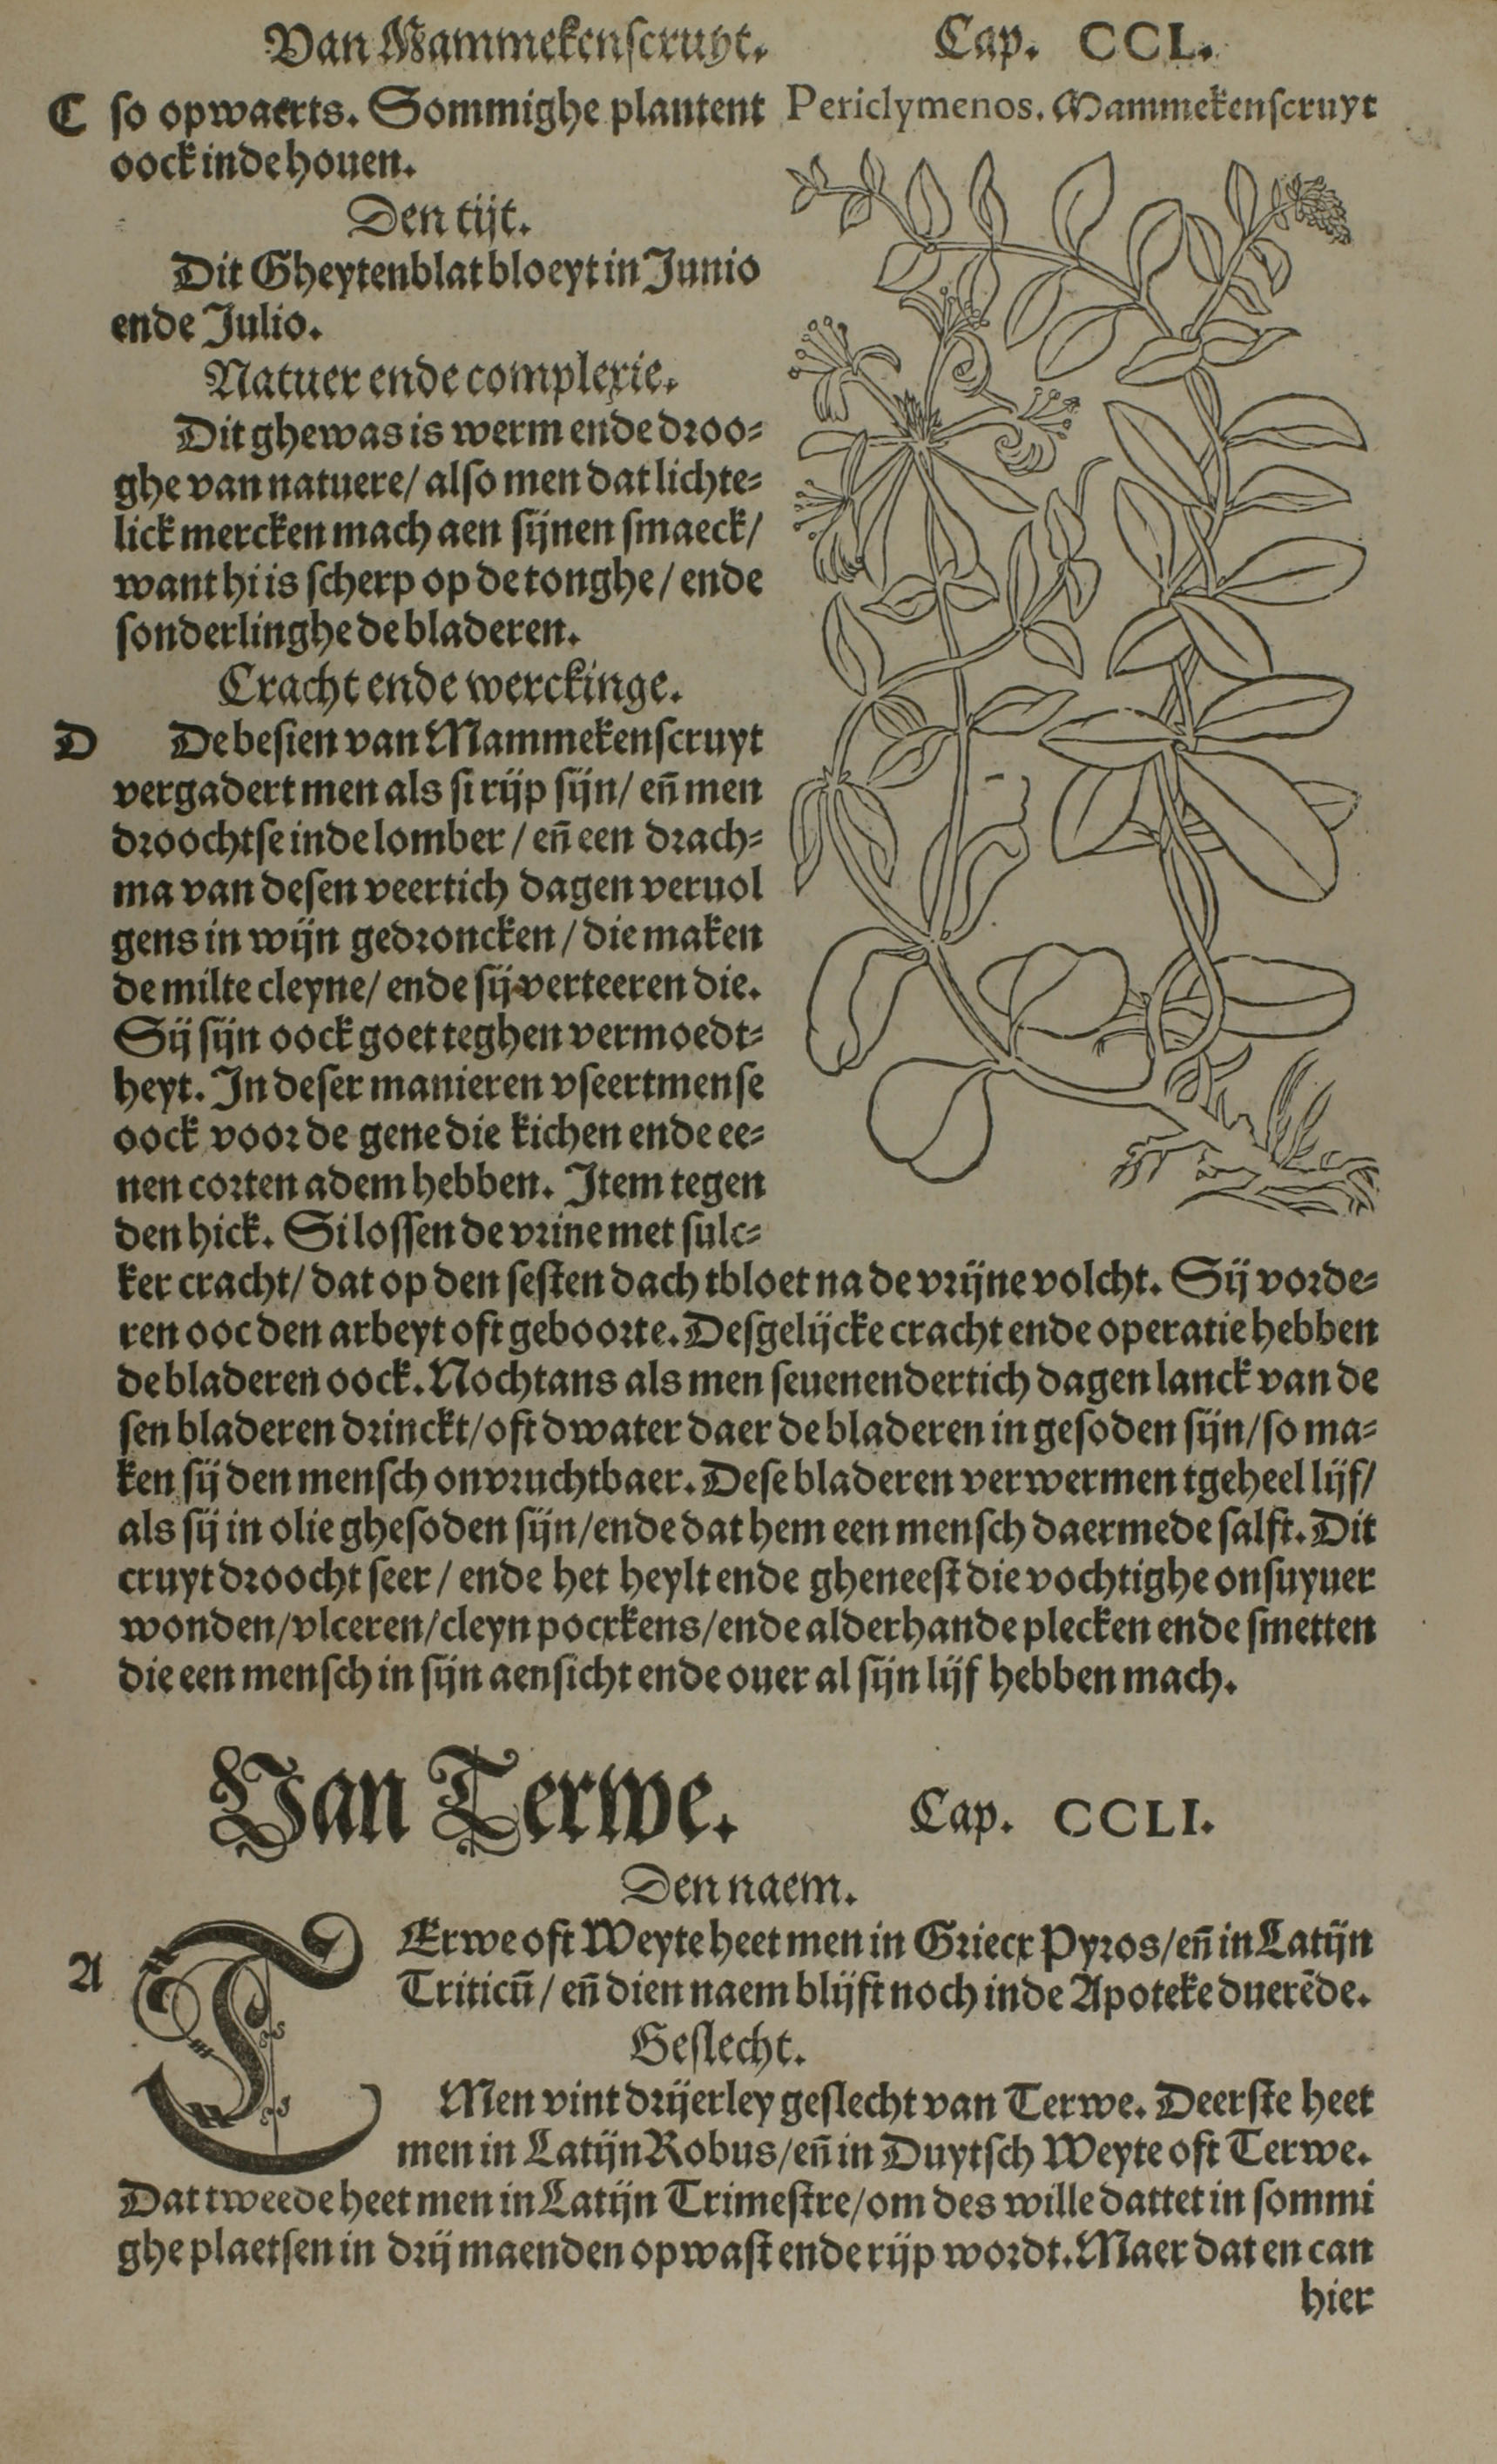 Van Mammekenscruyt. Cap. CCL.
C so opwaerts. Sommighe plantent
oock inde houen.
Den tijt.
Dit Gheytenblat bloeyt in Junio
ende Julio.
Natuer ende complexie.
Dit ghewas is werm ende droo⸗
ghe van natuere/ also men dat lichte⸗
lick mercken mach aen sijnen smaeck/
want hi is scherp op de tonghe/ ende
sonderlinghe de bladeren.
Cracht ende werckinge.
D De besien van Mammekenscruyt
vergadert men als si rijp sijn/ eñ men
droochtse inde lomber/ eñ een drach⸗
ma van desen veertich dagen veruol
gens in wijn gedroncken/ die maken
de milte cleyne/ ende sij verteeren die.
Sij sijn oock goet teghen vermoedt⸗
heyt. In deser manieren vseertmense
oock voor de gene die kichen ende ee⸗
nen corten adem hebben. Item tegen
den hick. Si lossen de vrine met sulc⸗
Periclymenos. Mammekenscruyt
ker cracht/ dat op den sesten dach tbloet na de vrijne volcht. Sij vorde⸗
ren ooc den arbeyt oft geboorte. Desgelijcke cracht ende operatie hebben
de bladeren oock. Nochtans als men seuenendertich dagen lanck van de
sen bladeren drinckt/ oft dwater daer de bladeren in gesoden sijn/ so ma⸗
ken sij den mensch onvruchtbaer. Dese bladeren verwermen tgeheel lijf/
als sij in olie ghesoden sijn/ ende dat hem een mensch daermede salft. Dit
cruyt droocht seer/ ende het heylt ende gheneest die vochtighe onsuyuer
wonden/ vlceren/ cleyn pocxkens/ ende alderhande plecken ende smetten
die een mensch in sijn aensicht ende ouer al sijn lijf hebben mach.
Van Terwe. Cap. CCLI.
Den naem.
A TErwe oft Weyte heet men in Griecx Pyros/ eñ in Latijn
Triticū/ eñ dien naem blijft noch inde Apoteke duerēde.
Geslecht.
Men vint drijerley geslecht van Terwe. Deerste heet
men in Latijn Robus/ eñ in Duytsch Weyte oft Terwe.
Dat tweede heet men in Latijn Trimestre/ om des wille dattet in sommi
ghe plaetsen in drij maenden opwast ende rijp wordt. Maer dat en can
hier